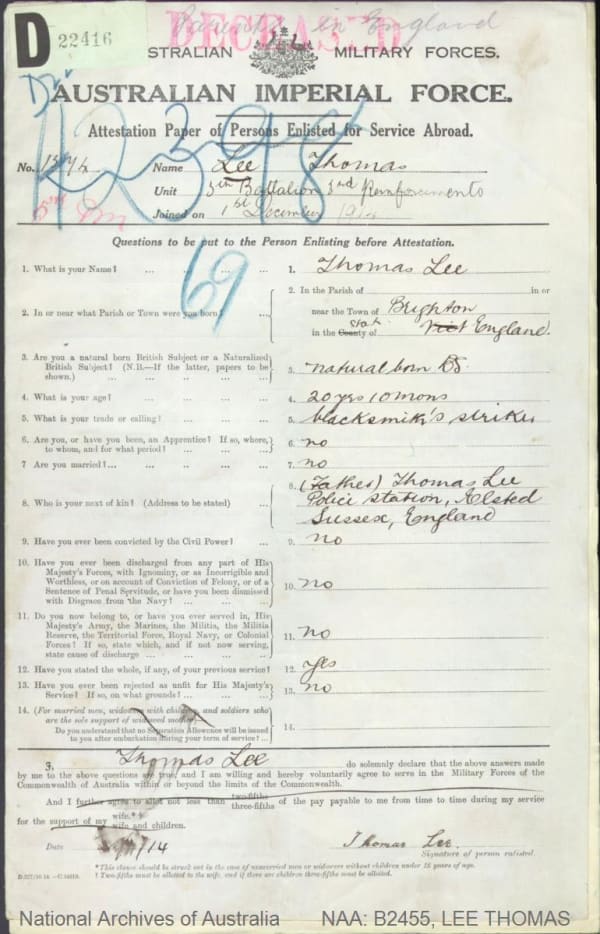 D 22416
DECEASED
Parents in England
AUSTRALIAN MILITARY FORCES.
AUSTRALIAN IMPERIAL FORCE.
42398
Attestation Paper of Persons Enlisted for Service Abroad.
No. Name Lee Thomas
Unit 5th Battalion 3rd Reinforcements
Joined on 1st December 1914
Questions to be put to the Person Enlisting before Attestation.
69
1. What is your Name? ... ... ... ... 1. Thomas Lee
2. In or near what Parish or Town were you born? ... 2. In the Parish of in or
near the Town of Brighton
in the County of England.
3. Are you a natural born British Subject or a Naturalized
British Subject? (N.B.—If the latter, papers to be
shown.) ... ... ... ... 3. natural born BS
4. What is your age? ... ... ... ... 4. 20 yrs 10 mons
5. What is your trade or calling? ... ... ... 5. blacksmith's striker
6. Are you, or have you been, an Apprentice? If so, where,
to whom, and for what period? ... ... ... 6. no
7. Are you married? ... ... ... ... 7. no
8. Who is your next of kin? (Address to be stated) ... 8. (Father) Thomas Lee
Police station, Alsted
Sussex, England
9. Have you ever been convicted by the Civil Power? ... 9. no
10. Have you ever been discharged from any part of His
Majesty's Forces, with Ignominy, or as Incorrigible and
Worthless, or on account of Conviction of Felony, or of a
Sentence of Penal Servitude, or have you been dismissed
with Disgrace from the Navy? ... ... ... 10. no
11. Do you now belong to, or have you ever served in, His
Majesty's Army, the Marines, the Militia, the Militia
Reserve, the Territorial Force, Royal Navy, or Colonial
Forces? If so, state which, and if not now serving,
state cause of discharge ... ... ... 11. no
12. Have you stated the whole, if any, of your previous service? 12. yes
13. Have you ever been rejected as unfit for His Majesty's
Service? If so, on what grounds? ... ... ... 13. no
14. (For married men, widowers with children, and soldiers who
are the sole support of widowed mother)—
Do you understand that no Separation Allowance will be issued
to you after embarkation during your term of service? ... 14.
I, Thomas Lee do solemnly declare that the above answers made
by me to the above questions are true, and I am willing and hereby voluntarily agree to serve in the Military Forces of the
Commonwealth of Australia within or beyond the limits of the Commonwealth.
And I further agree to allot not less than two-fifths three-fifths of the pay payable to me from time to time during my service
for the support of my wife.* wife and children.
Date /14 Thomas Lee.
Signature of person enlisted.
* This clause should be struck out in the case of unmarried men or widowers without children under 18 years of age.
† Two-fifths must be allotted to the wife, and if there are children three-fifths must be allotted.
National Archives of Australia NAA: B2455, LEE THOMAS